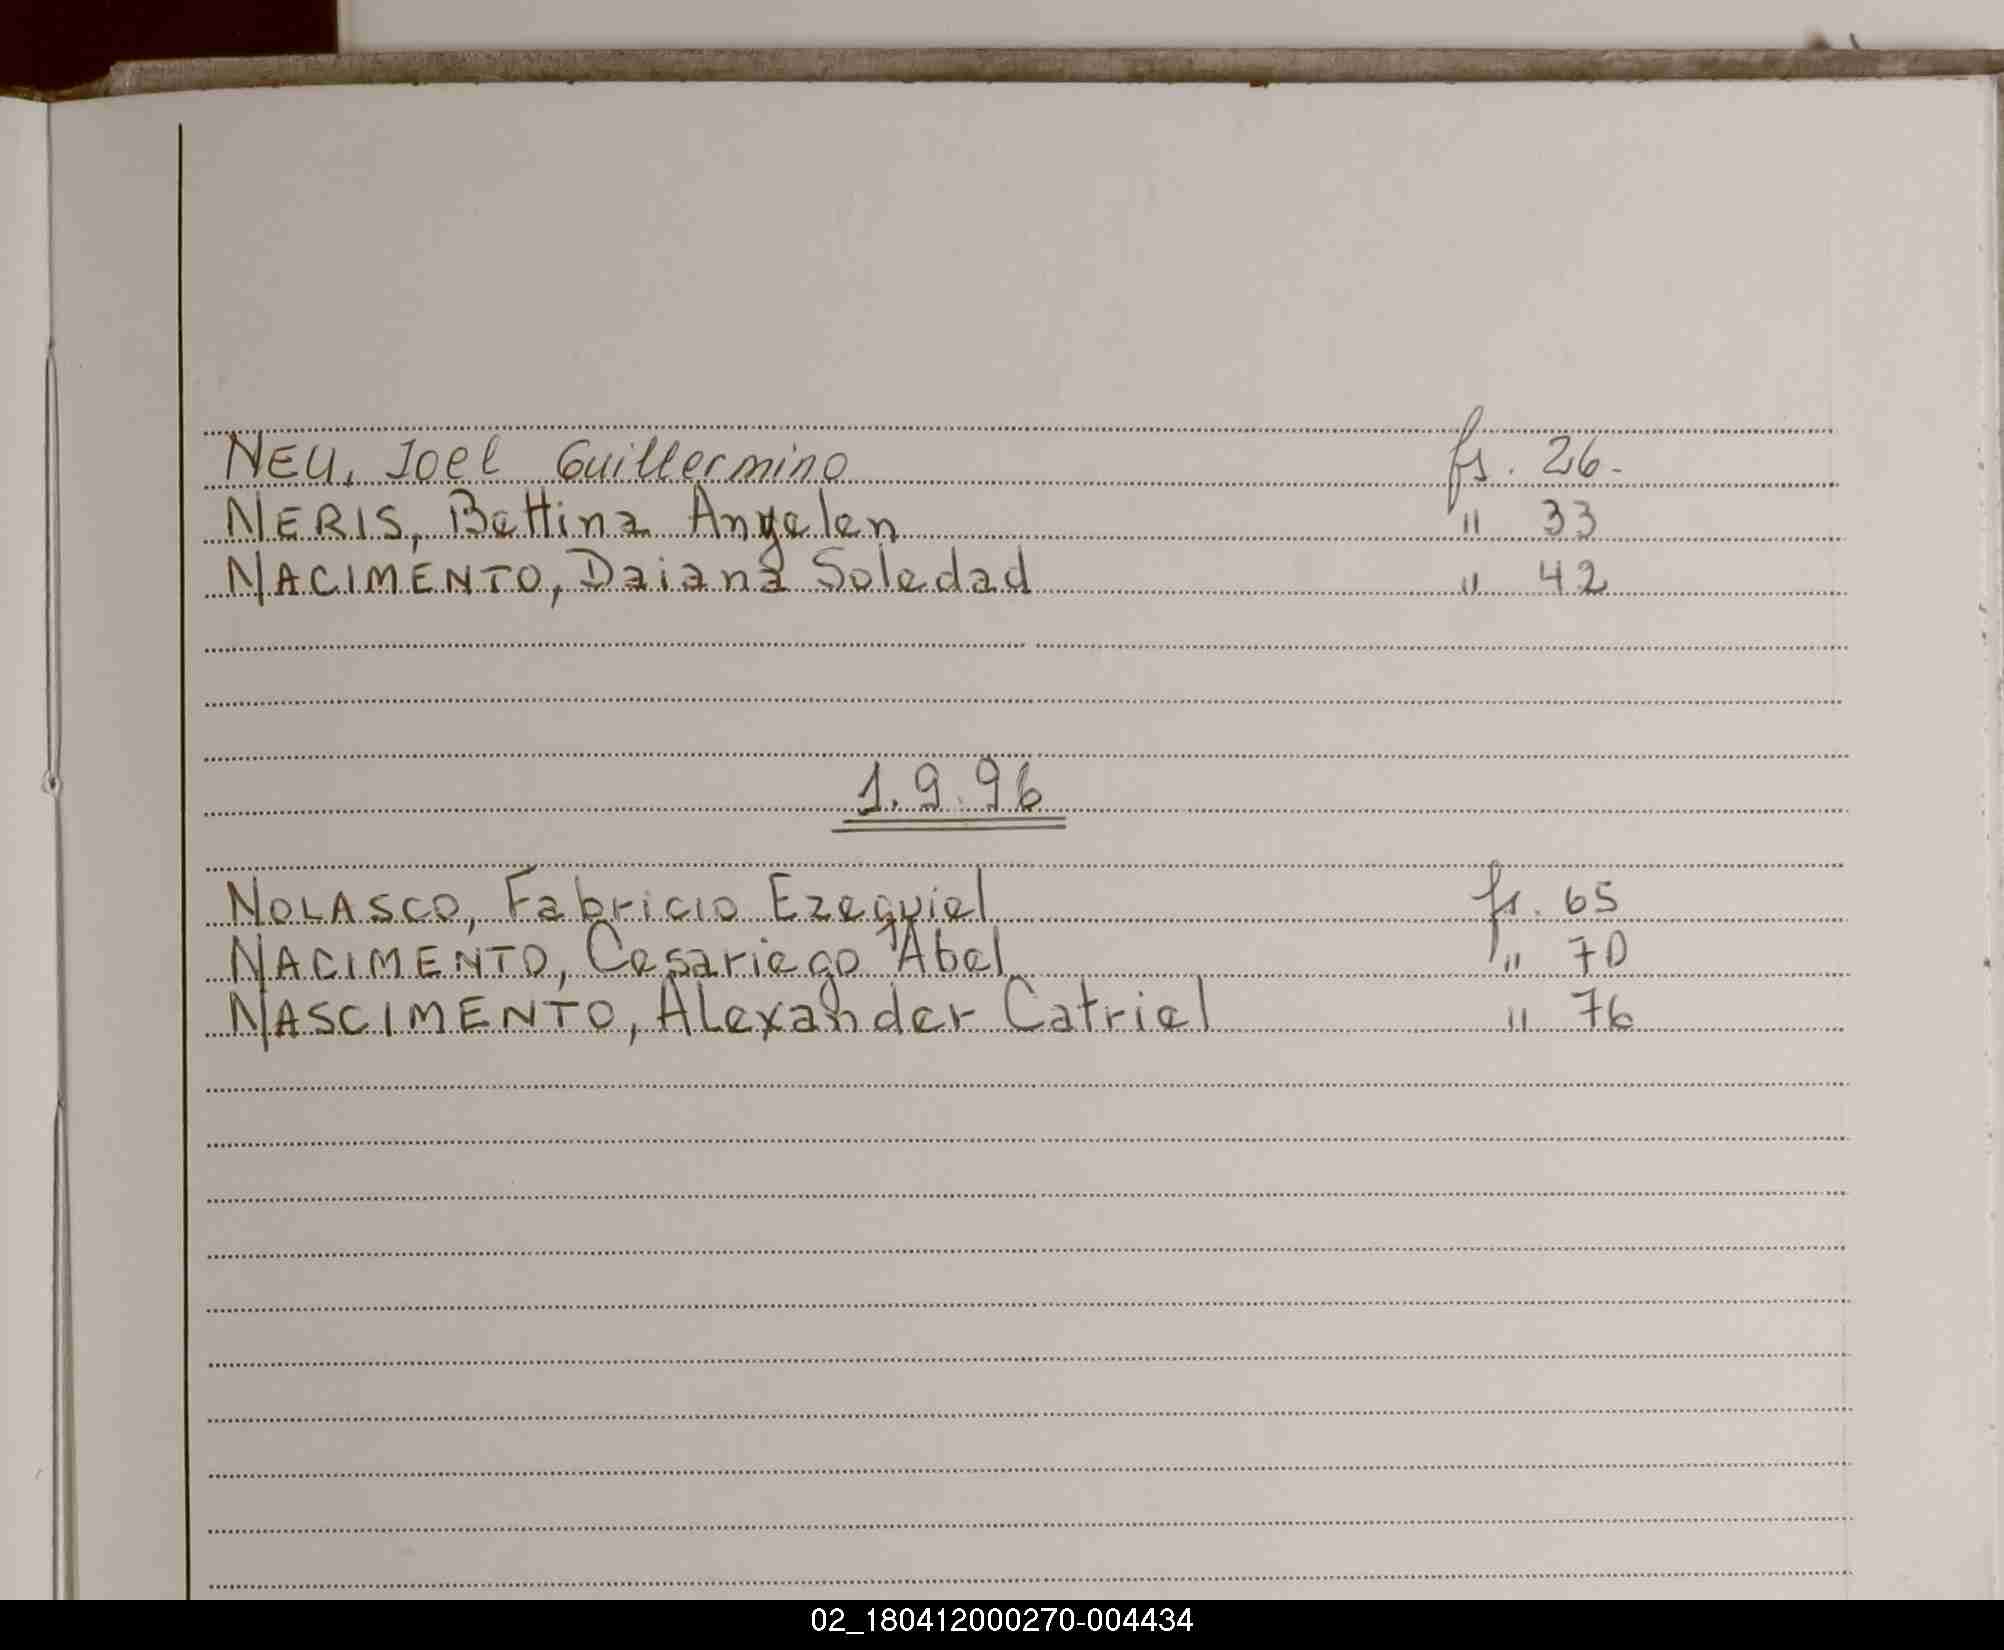 NEU, Joel Guillermino fs. 26.
NERIS, Bettina Anyelen " 33
NACIMENTO, Daiana Soledad " 42
1.9.96
NOLASCO, Fabricio Ezequiel fs. 65
NACIMENTO, Cesariego Abel " 70
NASCIMENTO, Alexander Catriel " 76
02_180412000270-004434